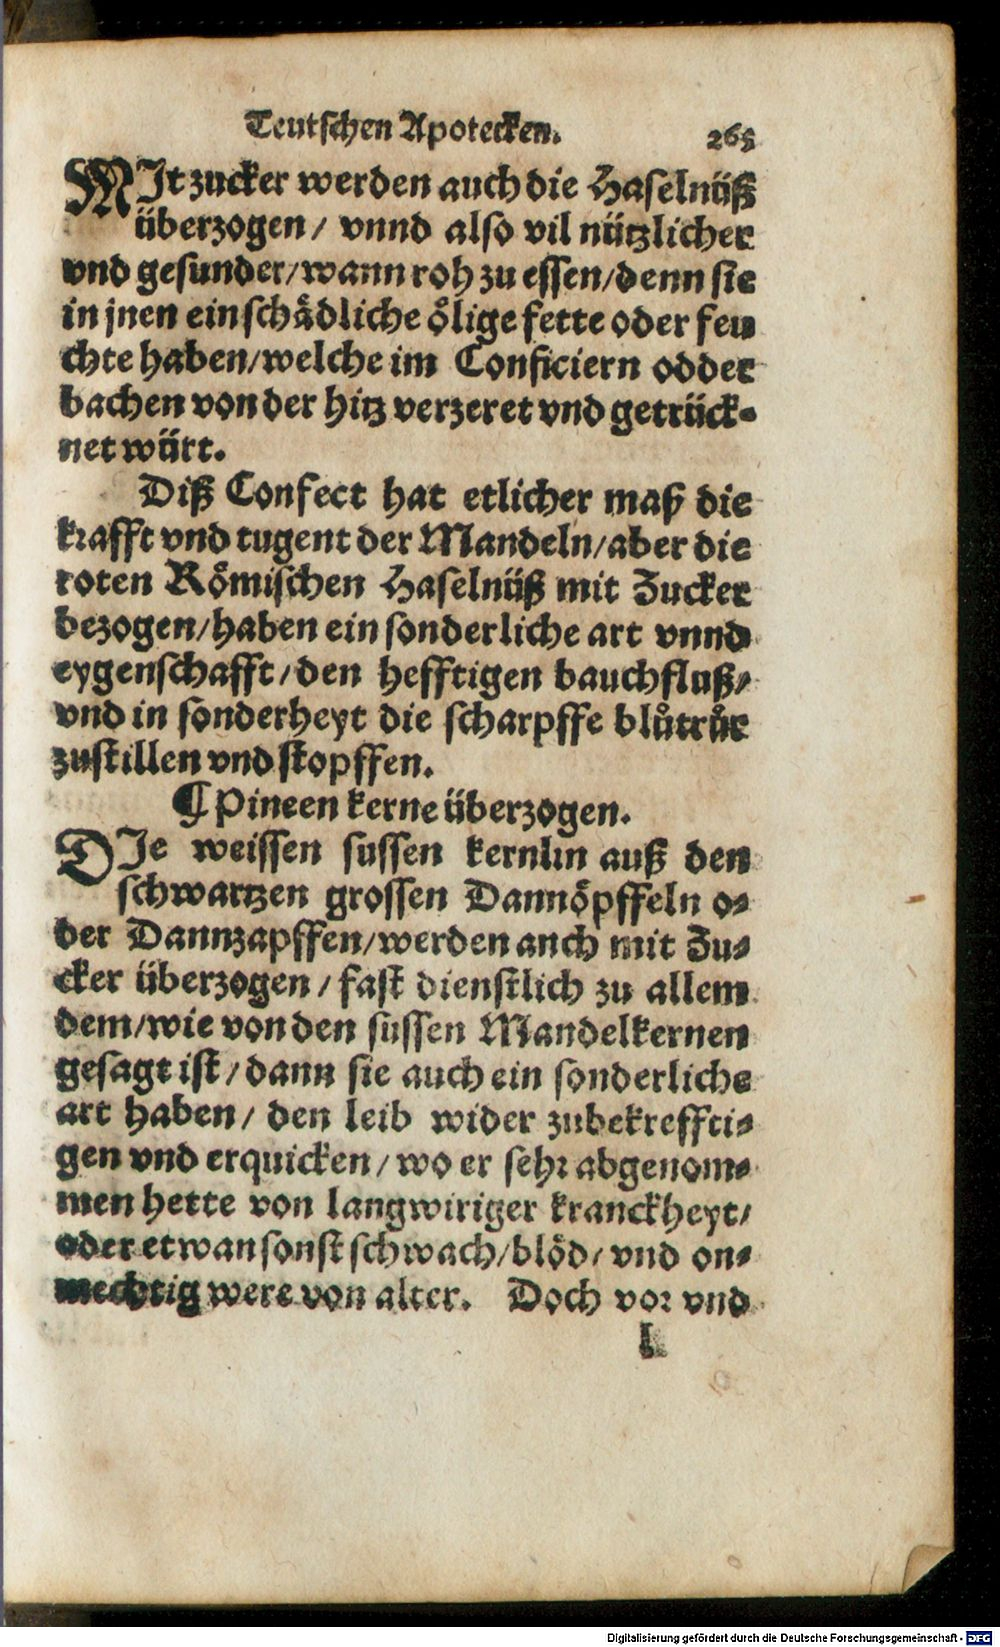 Teutschen Apotecken. 265
MIt zucker werden auch die Haselnüß
überzogen / vnnd also vil nützlicher
vnd gesunder/wann roh zu essen/denn sie
in jnen ein schådliche ölige fette oder feu
chte haben/welche im Conficiern odder
bachen von der hitz verzeret vnd getrück-
net würt.
Diß Confect hat etlicher maß die
krafft vnd tugent der Mandeln/aber die
roten Römischen Haselnüß mit Zucker
bezogen/haben ein sonderliche art vnnd
eygenschafft/den hefftigen bauchfluß/
vnd in sonderheyt die scharpffe blůtrůr
zustillen vnd stopffen.
¶ Pineen kerne überzogen.
DIe weissen sussen kernlin auß den
schwartzen grossen Dannöpffeln o-
der Dannzapffen/werden anch mit Zu-
cker überzogen/fast dienstlich zu allem
dem/wie von den sussen Mandelkernen
gesagt ist/dann sie auch ein sonderliche
art haben/den leib wider zubekreffti-
gen vnd erquicken/wo er sehr abgenom-
men hette von langwiriger kranckheyt/
oder etwan sonst schwach/blöd/vnd on-
mechtig were von alter. Doch vor vnd
Digitalisierung gefördert durch die Deutsche Forschungsgemeinschaft - DFG